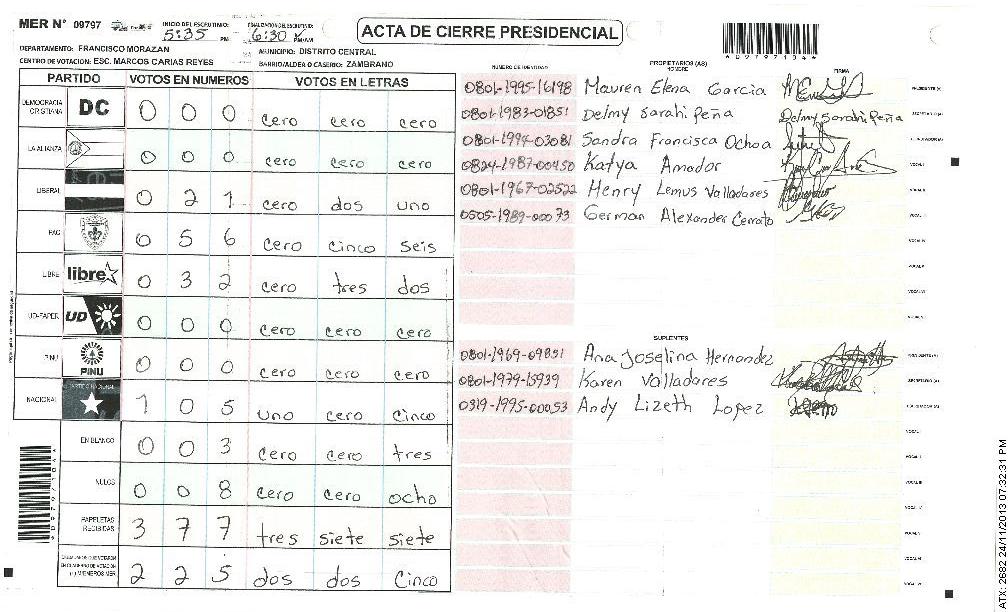 MER N° 09797 INICIO DEL ESCRUTINIO: 5:35 PM FINALIZACION DEL ESCRUTINIO: 6:30 PM/AM
ACTA DE CIERRE PRESIDENCIAL
DEPARTAMENTO: FRANCISCO MORAZAN MUNICIPIO: DISTRITO CENTRAL
CENTRO DE VOTACION: ESC. MARCOS CARIAS REYES BARRIO/ALDEA O CASERIO: ZAMBRANO
PARTIDO VOTOS EN NUMEROS VOTOS EN LETRAS
DEMOCRACIA CRISTIANA DC 0 0 0 cero cero cero
LA ALIANZA 0 0 0 cero cero cero
LIBERAL 0 2 1 cero dos uno
PAC 0 5 6 cero cinco seis
LIBRE libre 0 3 2 cero tres dos
UD-FAPER UD 0 0 0 cero cero cero
PINU PINU 0 0 0 cero cero cero
NACIONAL 1 0 5 uno cero cinco
EN BLANCO 0 0 3 cero cero tres
NULOS 0 0 8 cero cero ocho
PAPELETAS RECIBIDAS 3 7 7 tres siete siete
2 2 5 dos dos cinco
NUMERO DE IDENTIDAD PROPIETARIOS (AS) NOMBRE FIRMA
0801-1995-16198 Mauren Elena Garcia
0801-1983-01851 Delmy Sarahi Peña Delmy Sarahi Peña
0801-1994-03081 Sandra Francisca Ochoa
0824-1987-00450 Katya Amador
0801-1967-02522 Henry Lemus Valladares
0505-1989-00073 German Alexander Cerrato
SUPLENTES
0801-1969-09851 Ana Joselina Hernandez
0801-1979-15939 Karen Valladares
0319-1995-00053 Andy Lizeth Lopez
ATX: 2682 24/11/2013 07:32:31 PM